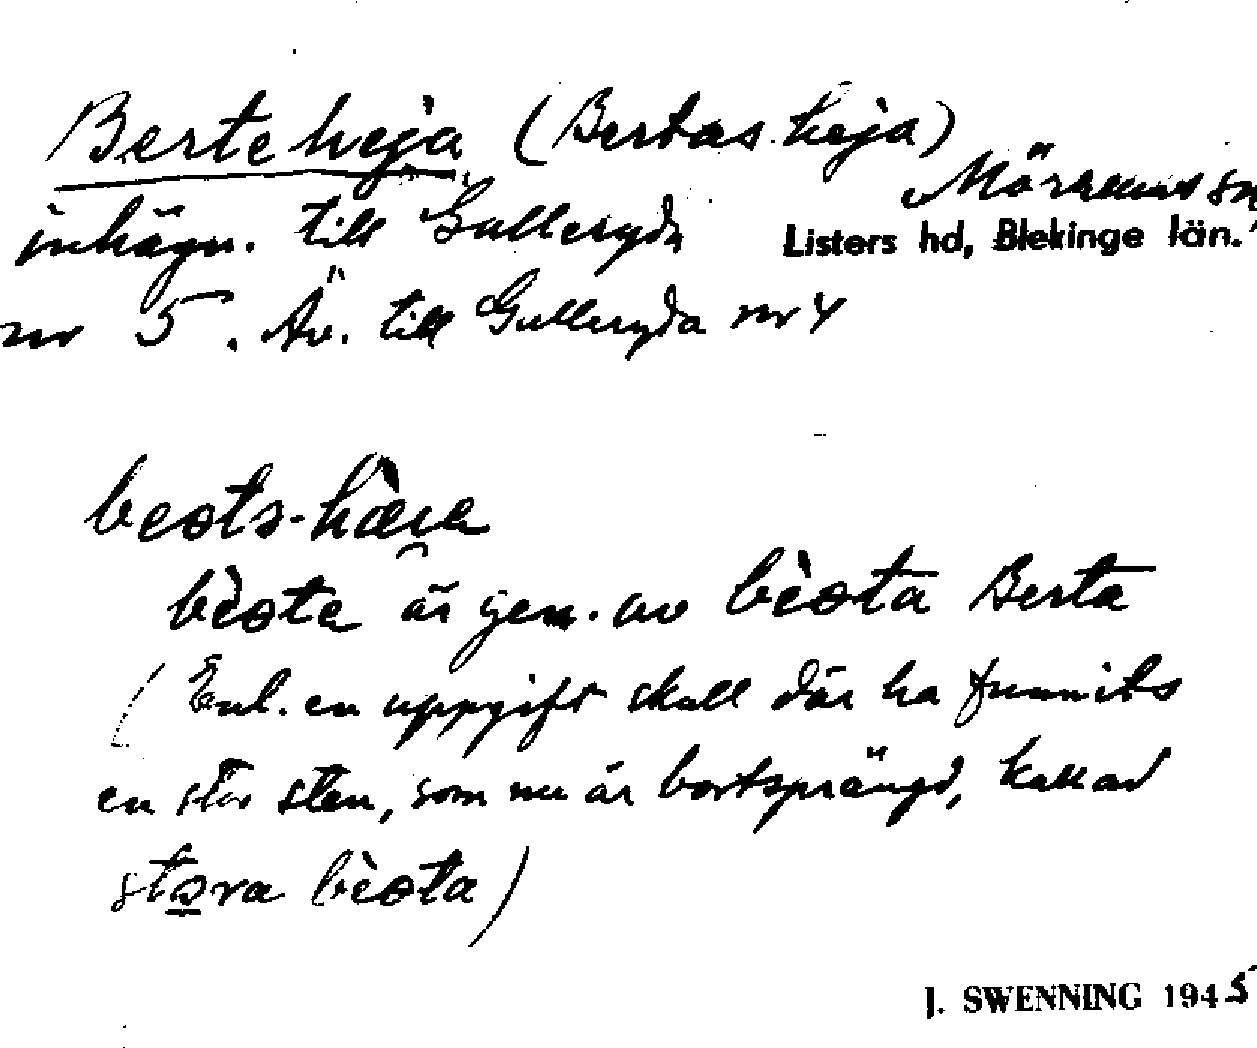 Berteheja (Bertas heja)
Mörrums sn
inhägn. till Gulleryda
Listers hd, Blekinge län.
nr 5. Äv. till Gulleryda nr 4
beots-hæra
bèote är gen. av bèota Berta
(Enl. en uppgift skall där ha funnits
en stor sten, som nu är bortsprängd, kallad
stora bèota)
J. SWENNING 1945